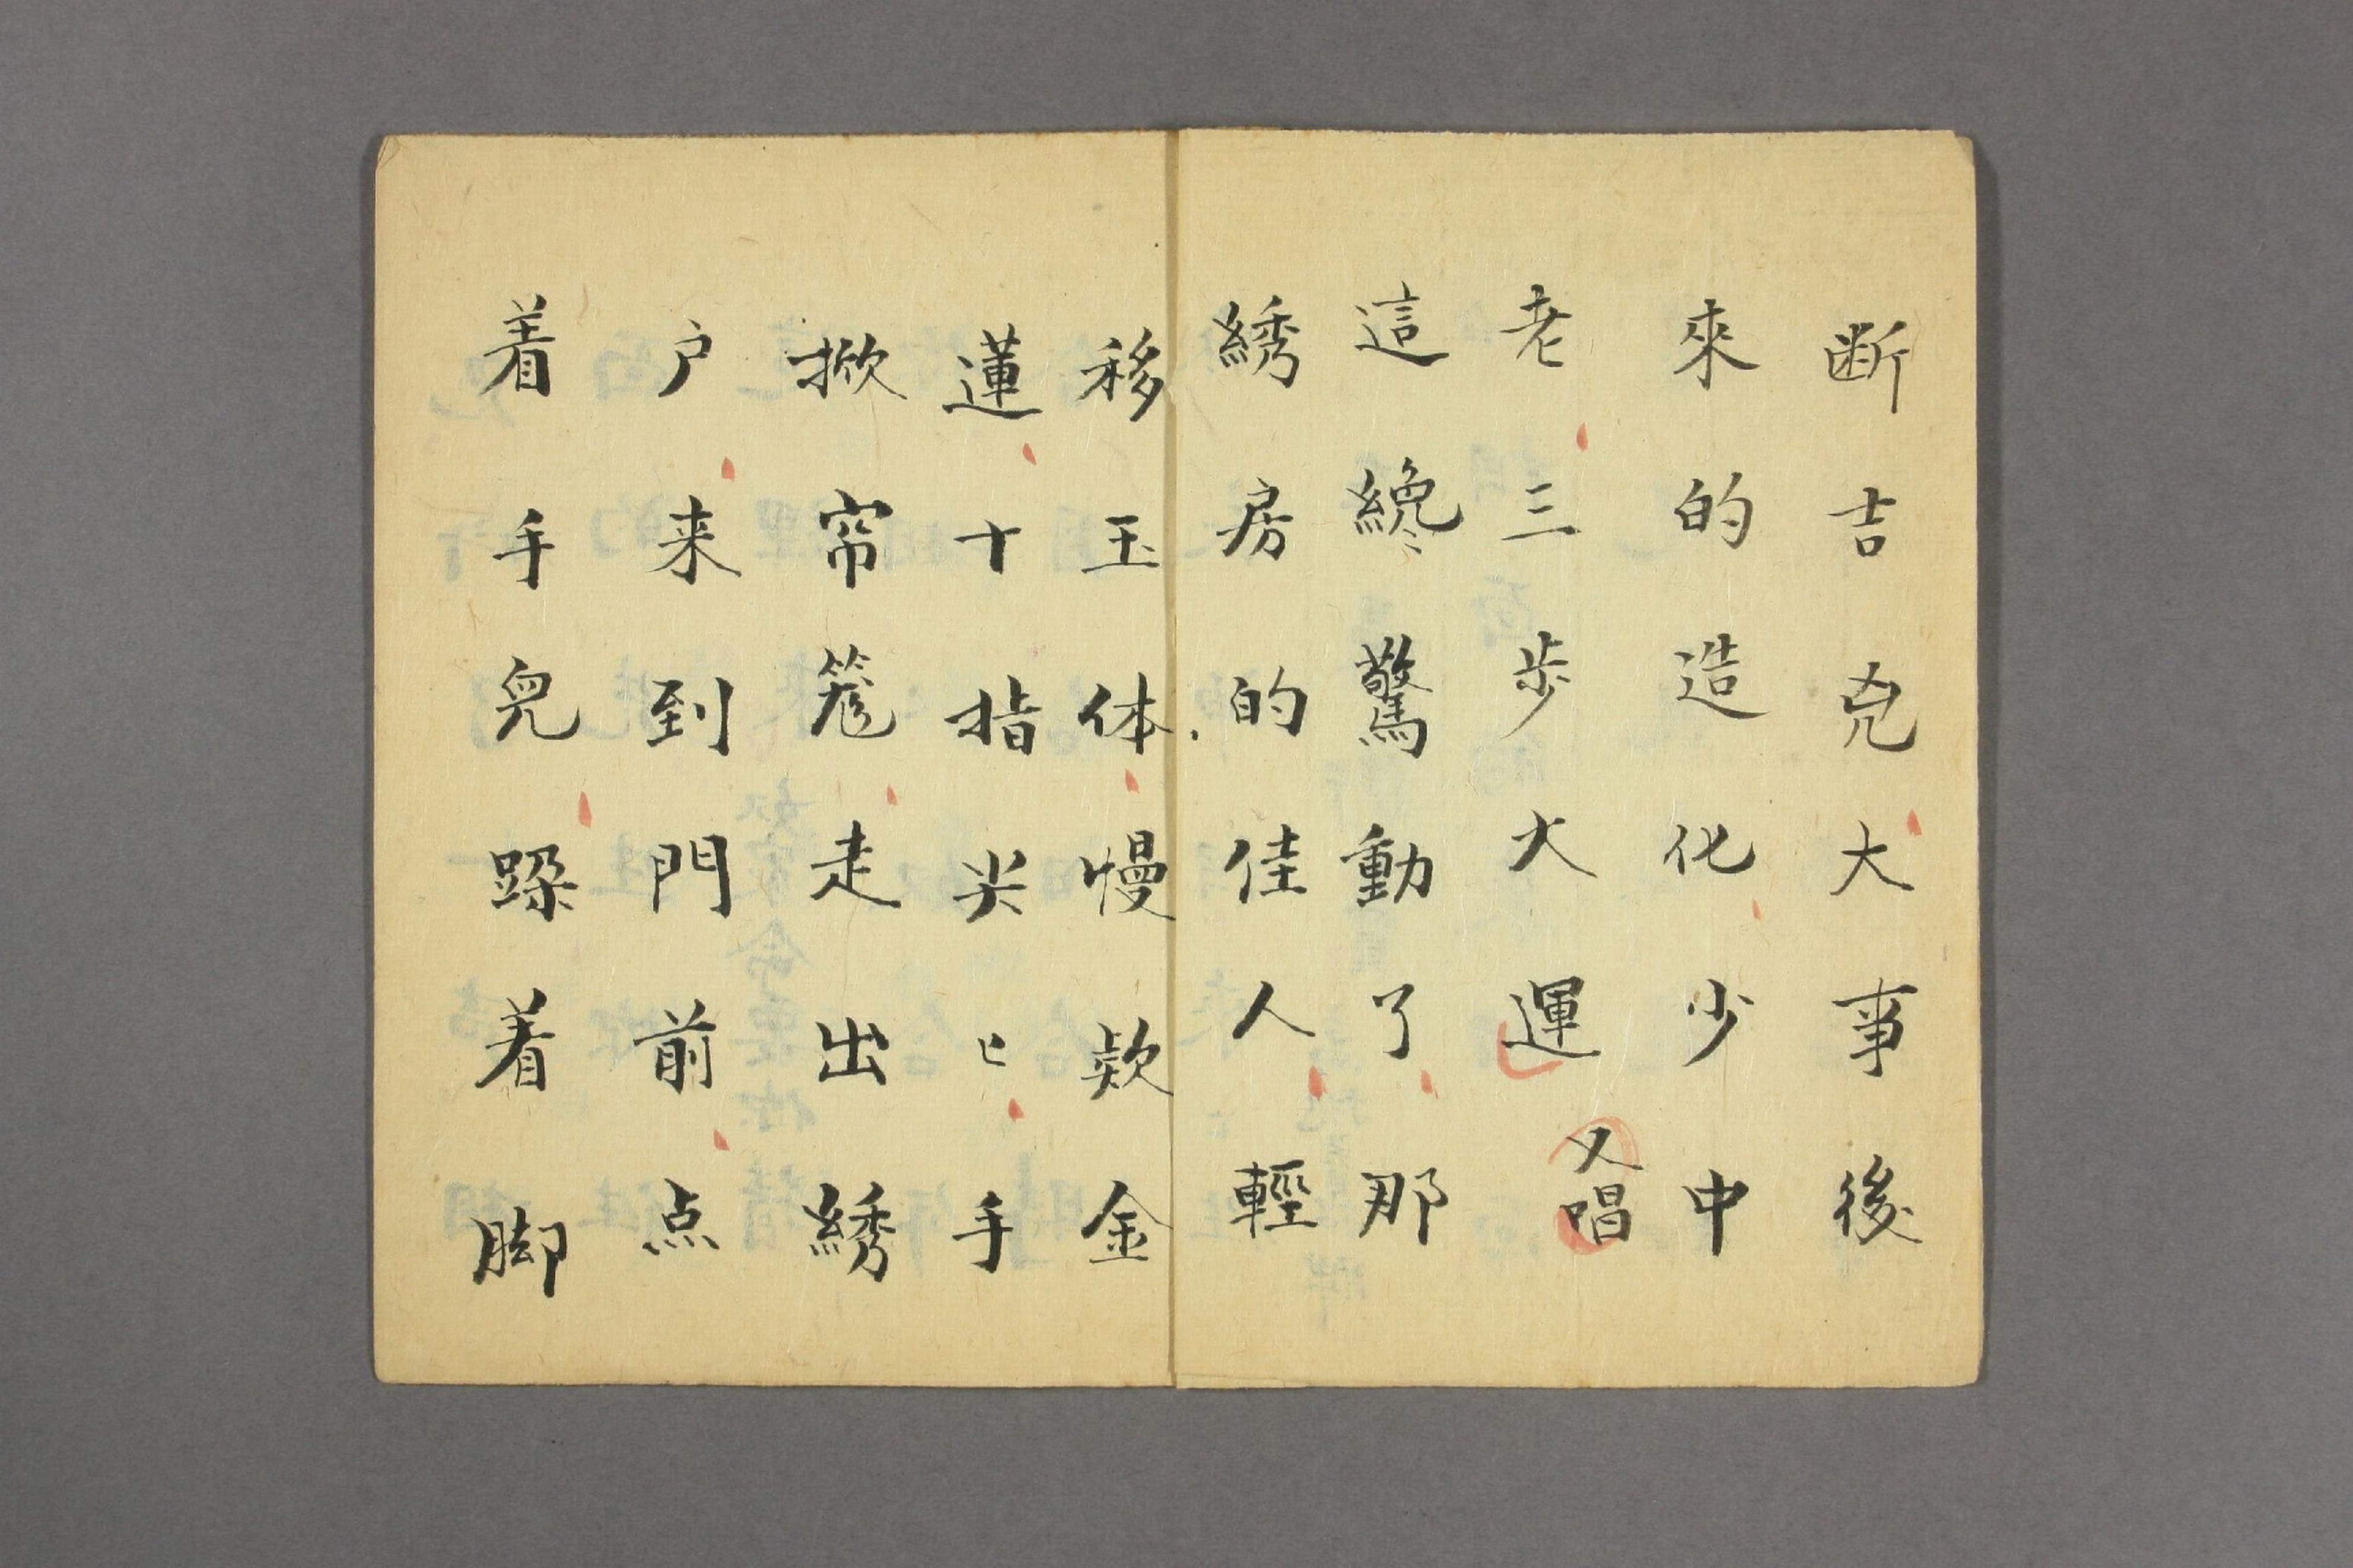 断吉兇大事後
來的造化少中
老三步大運
又唱
這纔驚動了那
綉房的佳人輕
移玉体慢欵金
蓮十指尖〻手
掀帘笼走出綉
户来到門前点
着手兒跺着脚